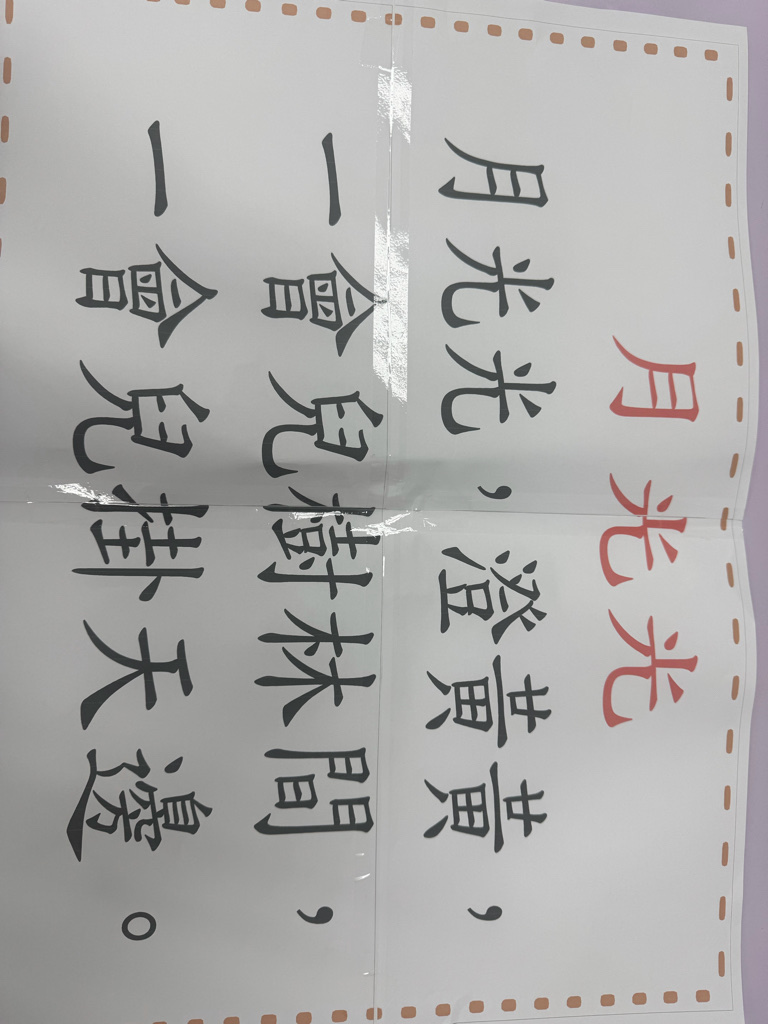 月光光
月光光，澄黃黃，
一會兒樹林間，
一會兒掛天邊。